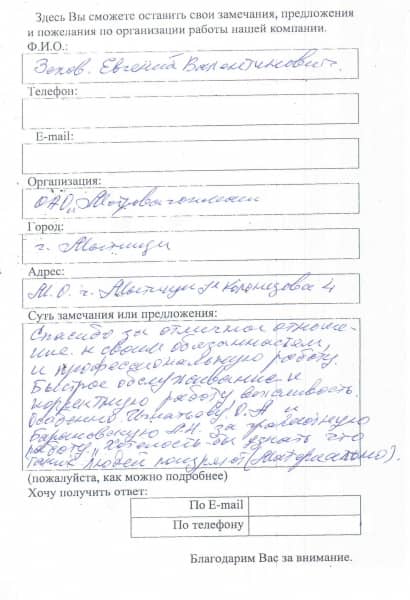 Здесь Вы сможете оставить свои замечания, предложения
и пожелания по организации работы нашей компании.
Ф.И.О.:
Зохов. Евгений Валентинович.
Телефон:
E-mail:
Организация:
ОАО „Метровагонмаш
Город:
г. Мытищи
Адрес:
М.О. г. Мытищи ул Колонцова 4
Суть замечания или предложения:
Спасибо за отличное отноше-
ние к своим обязанностям,
и профессиональную работу
Быстрое обслуживание и
корректную работу вежливость.
Особенно Игнатьеву О.А и
Барановскую А.Н. за
работу. Хотелось бы узнать что
таких людей поощряют (Материально).
(пожалуйста, как можно подробнее)
Хочу получить ответ:
По E-mail
По телефону
Благодарим Вас за внимание.